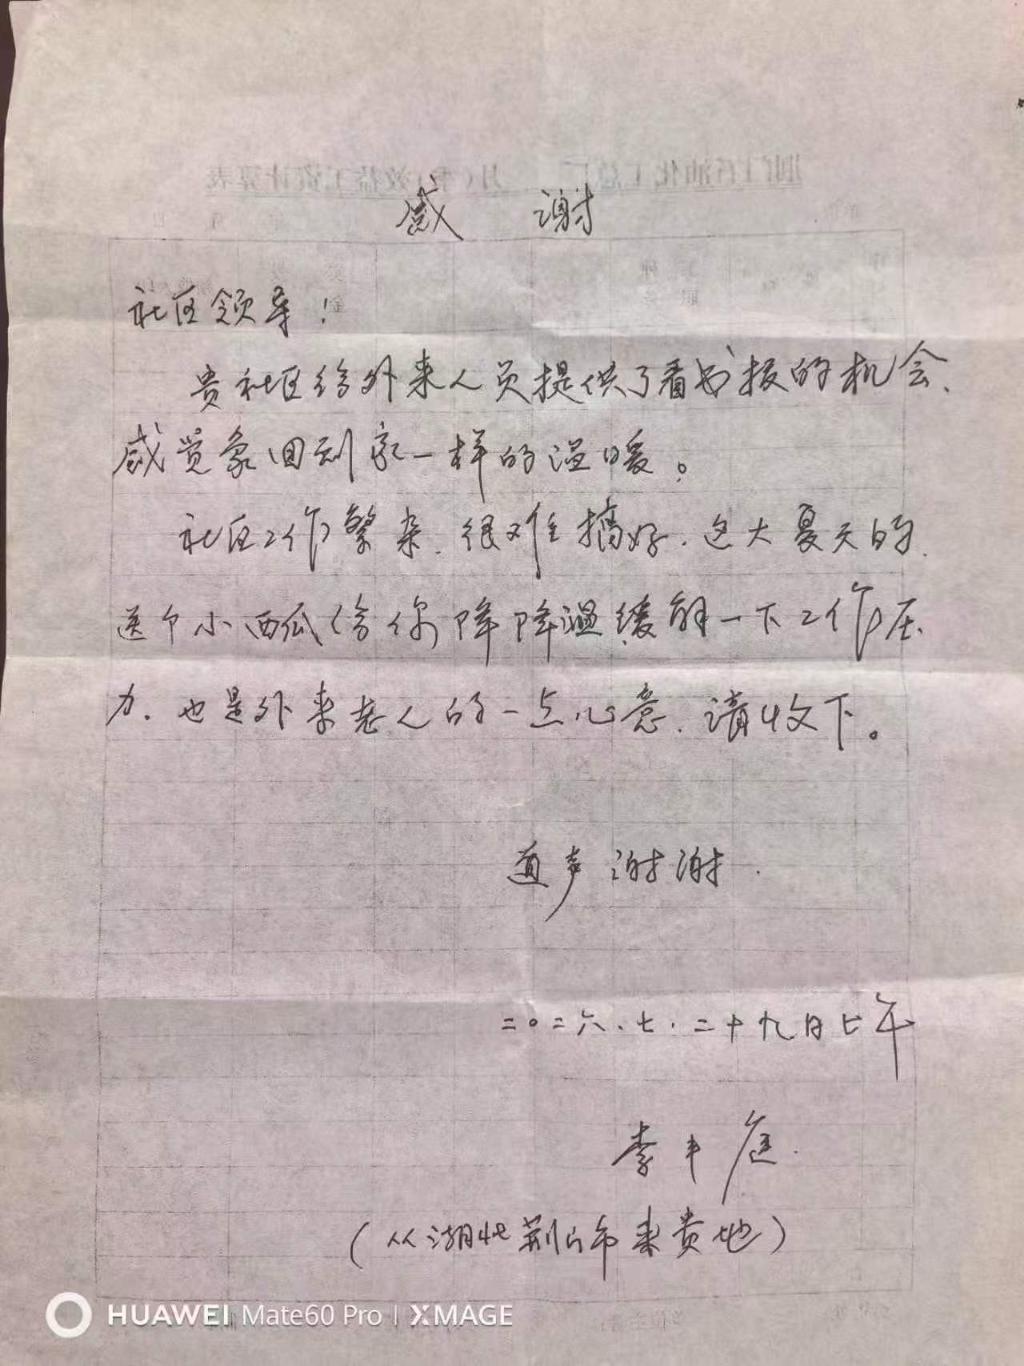 感 谢
社区领导！
贵社区给外来人员提供了看书报的机会、
感觉象回到家一样的温暖。
社区工作繁杂、很难搞好、这大夏天的、
送个小西瓜给你降降温缓解一下工作压
力、也是外来老人的一点心意、请收下。
道声谢谢.
二〇二六.七.二十九日上午
李丰庭
(从湖北荆门市来贵地)
HUAWEI Mate60 Pro | XMAGE